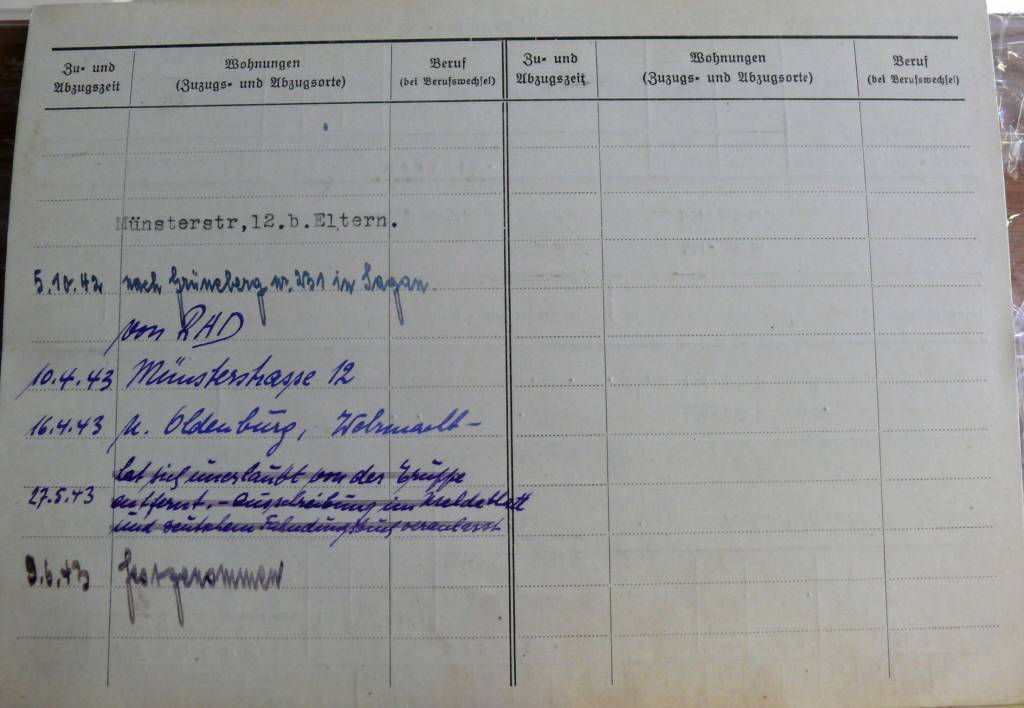 Zu- und Abzugszeit
Wohnungen
(Zuzugs- und Abzugsorte)
Beruf
(bei Berufswechsel)
Zu- und Abzugszeit
Wohnungen
(Zuzugs- und Abzugsorte)
Beruf
(bei Berufswechsel)
Münsterstr,12.b.Eltern.
5.10.42 nach Grüneberg in Sagan
von RAD
10.4.43 Münsterstrasse 12
16.4.43 n. Oldenburg, Wehrmacht-
hat sich unerlaubt von der Truppe
27.5.43 entfernt.- Ausschreibung im Meldeblatt
und Fahndungsbuch veranlasst
9.6.43 Festgenommen